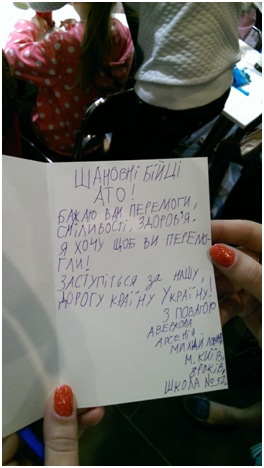 ШАНОВНІ БІЙЦІ
АТО!
БАЖАЮ ВАМ ПЕРЕМОГИ,
СМІЛИВОСТІ, ЗДОРОВ'Я.
Я ХОЧУ ЩОБ ВИ ПЕРЕМО-
ГЛИ!
ЗАСТУПІТЬСЯ ЗА НАШУ,
ДОРОГУ КРАЇНУ УКРАЇНУ!
З ПОВАГОЮ
АВЕРКОВА
АРСЕНІЯ
М. КИЇВ
8 РОКІВ,
ШКОЛА №